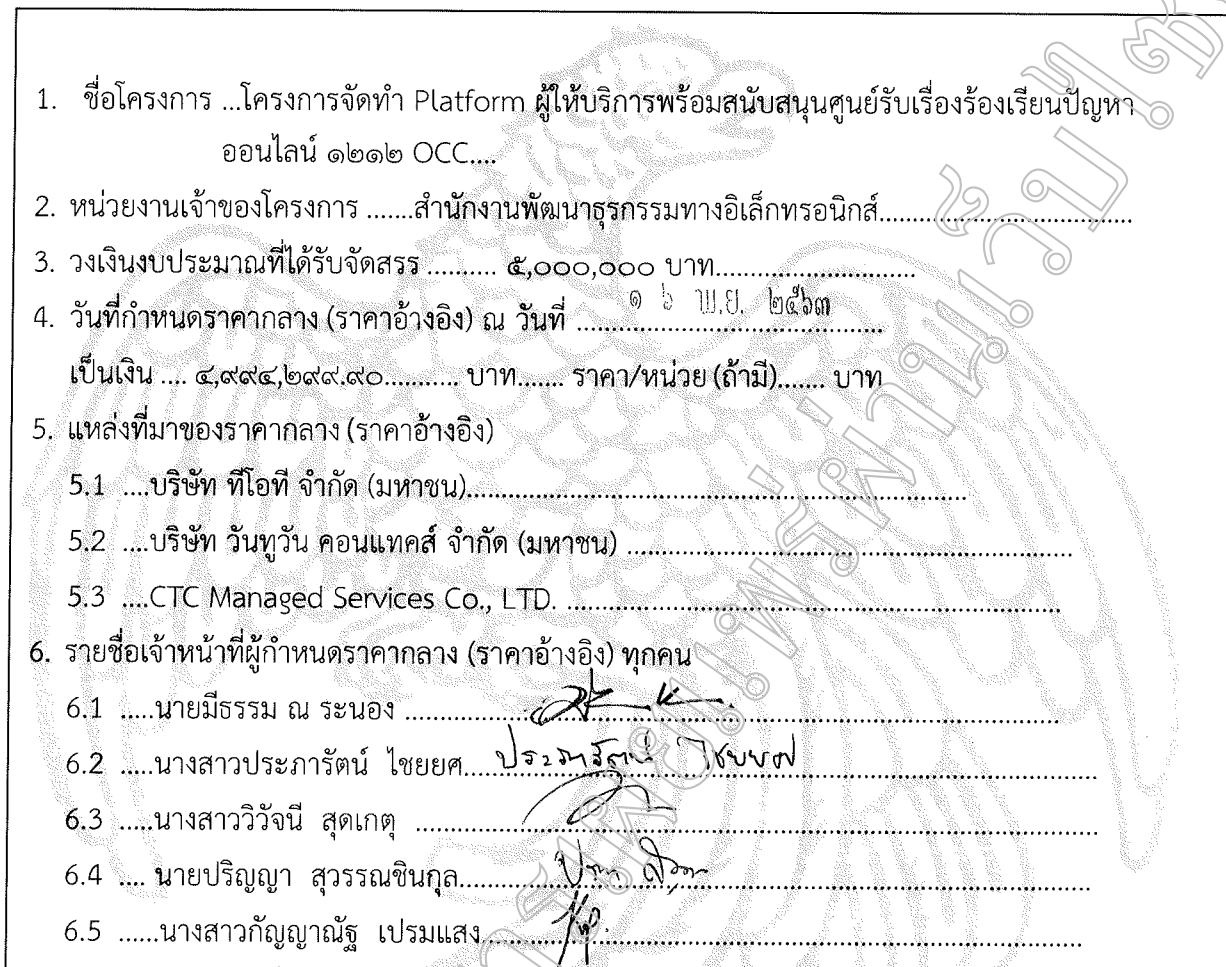 1. ชื่อโครงการ ...โครงการจัดทำ Platform ผู้ให้บริการพร้อมสนับสนุนศูนย์รับเรื่องร้องเรียนปัญหา
ออนไลน์ ๑๒๑๒ OCC....
2. หน่วยงานเจ้าของโครงการ .......สำนักงานพัฒนาธุรกรรมทางอิเล็กทรอนิกส์.......
3. วงเงินงบประมาณที่ได้รับจัดสรร .......... ๕,๐๐๐,๐๐๐ บาท.......
4. วันที่กำหนดราคากลาง (ราคาอ้างอิง) ณ วันที่ ๑ ๖ พ.ย. ๒๕๖๓
เป็นเงิน .... ๔,๙๙๔,๒๙๙.๙๐........... บาท....... ราคา/หน่วย (ถ้ามี)....... บาท
5. แหล่งที่มาของราคากลาง (ราคาอ้างอิง)
5.1 ....บริษัท ทีโอที จำกัด (มหาชน).......
5.2 ....บริษัท วันทูวัน คอนแทคส์ จำกัด (มหาชน) .......
5.3 ....CTC Managed Services Co., LTD. .......
6. รายชื่อเจ้าหน้าที่ผู้กำหนดราคากลาง (ราคาอ้างอิง) ทุกคน
6.1 .....นายมีธรรม ณ ระนอง .......
6.2 .....นางสาวประภารัตน์ ไชยยศ..... ประภารัตน์ ไชยยศ
6.3 .....นางสาววิวัจนี สุดเกตุ .......
6.4 .... นายปริญญา สุวรรณชินกุล.......
6.5 ......นางสาวกัญญาณัฐ เปรมแสง.......